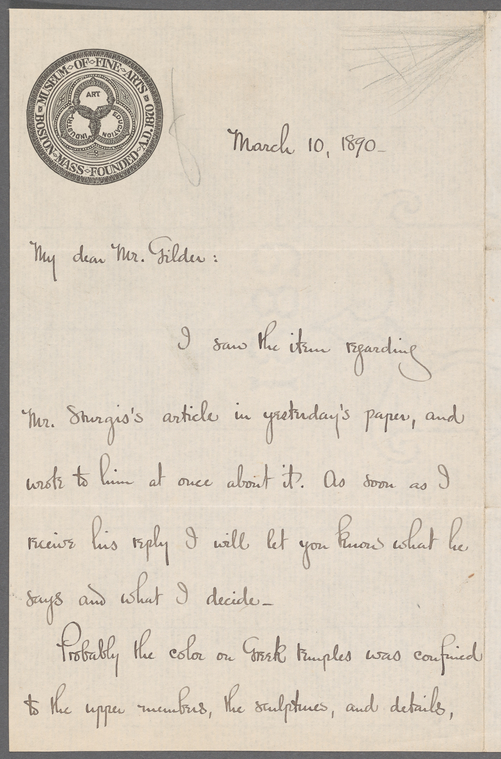 MUSEUM·OF·FINE·ARTS
BOSTON·MASS·FOUNDED·A.D.1870
ART
EDUCATION
INDUSTRY
March 10, 1890–
My dear Mr. Gilder:
I saw the item regarding
Mr. Sturgis's article in yesterday's paper, and
wrote to him at once about it. As soon as I
receive his reply I will let you know what he
says and what I decide–
Probably the color on Greek temples was confined
to the upper members, the sculptures, and details,